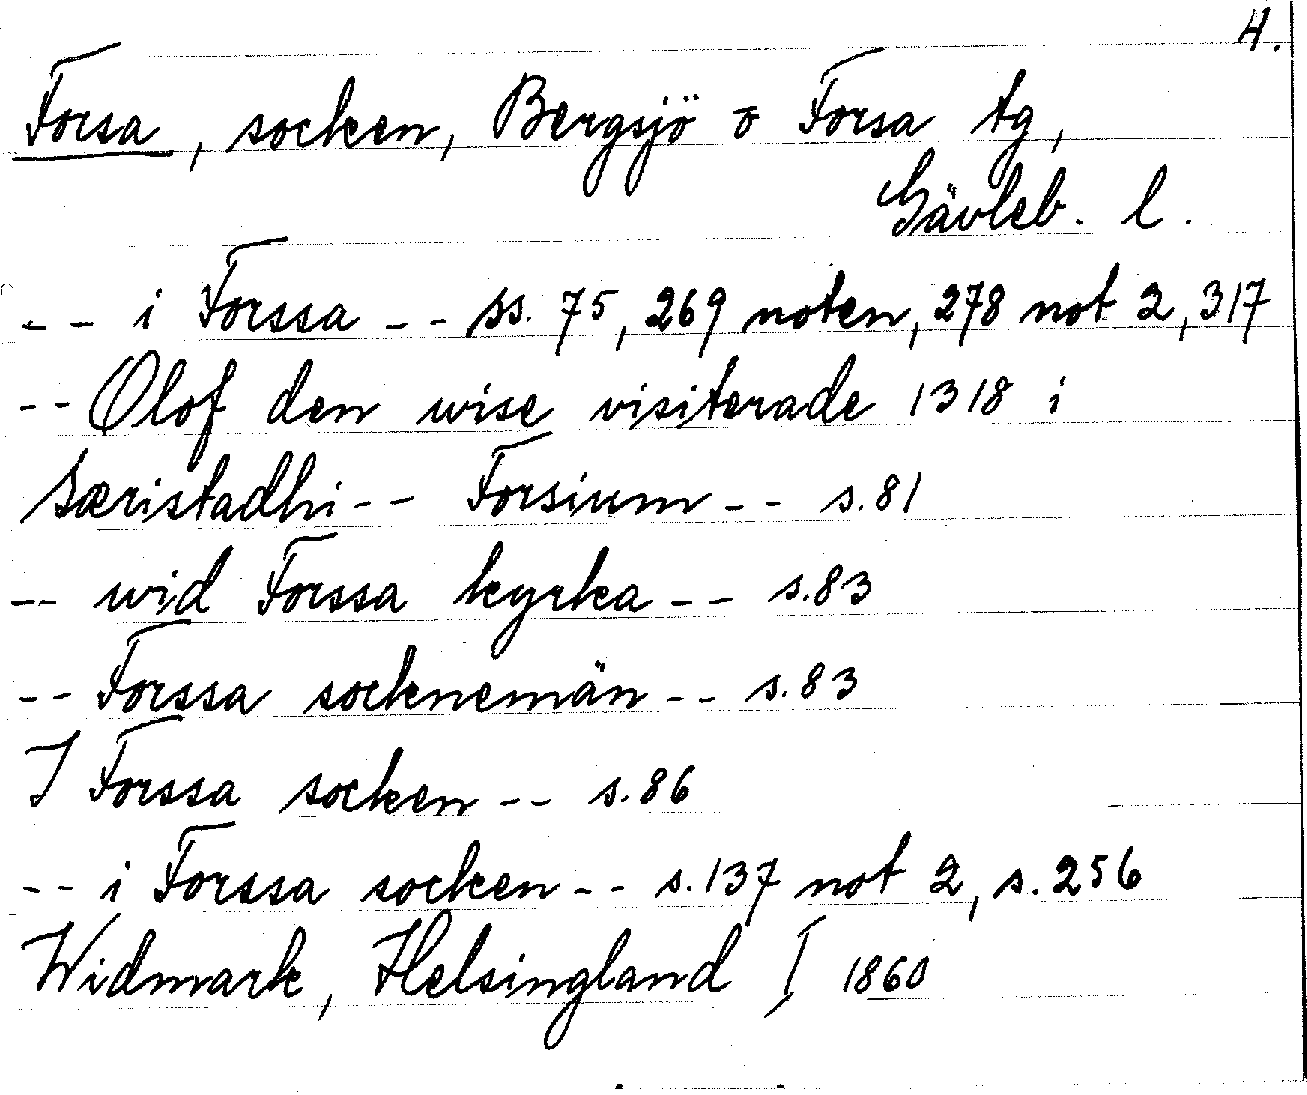 4.
Forsa, socken, Bergsjö o Forsa tg,
Gävleb. l.
-- i Forssa -- ss. 75, 269 noten, 278 not 2, 317
-- Olof den wise visiterade 1318 i
Særistadhi -- Forsium -- s.81
-- wid Forssa kyrka -- s.83
-- Forssa socknemän -- s.83
I Forssa socken -- s.86
-- i Forssa socken -- s.137 not 2, s.256
Widmark, Helsingland I 1860